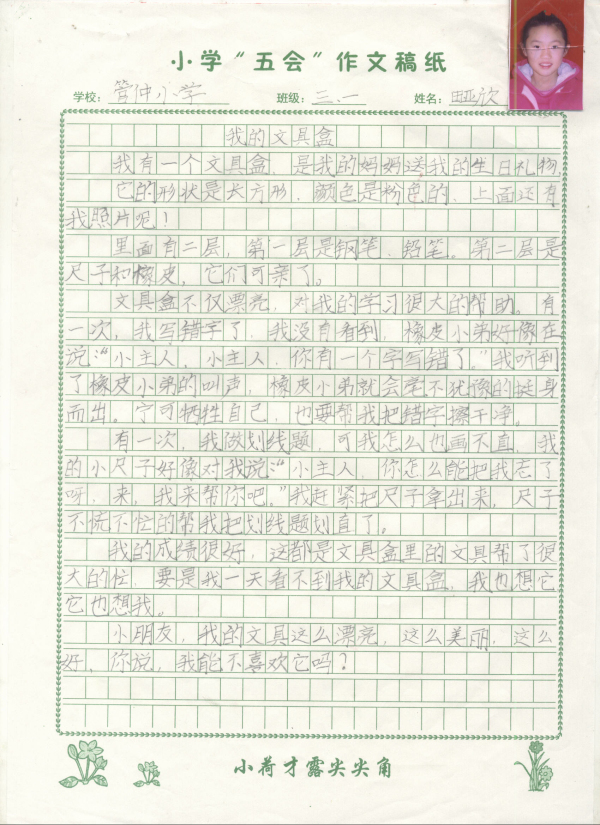 小学“五会”作文稿纸
学校：管仲小学 班级：三.一 姓名：欣
我的文具盒
我有一个文具盒，是我的妈妈送我的生日礼物，
它的形状是长方形，颜色是粉色的，上面还有
我照片呢！
里面有二层，第一层是钢笔、铅笔。第二层是
尺子和橡皮，它们可亲了。
文具盒不仅漂亮，对我的学习很大的帮助。有
一次，我写错字了，我没有看到，橡皮小弟好像在
说：“小主人，小主人，你有一个字写错了。”我听到
了橡皮小弟的叫声，橡皮小弟就会毫不犹豫的挺身
而出。宁可牺牲自己，也要帮我把错字擦干净。
有一次，我做划线题，可我怎么也画不直，我
的小尺子好像对我说：“小主人，你怎么能把我忘了
呀，来，我来帮你吧。”我赶紧把尺子拿出来，尺子
不慌不忙的帮我把划线题划直了。
我的成绩很好，这都是文具盒里的文具帮了很
大的忙，要是我一天看不到我的文具盒，我也想它
它也想我。
小朋友，我的文具这么漂亮，这么美丽，这么
好，你说，我能不喜欢它吗？
小荷才露尖尖角